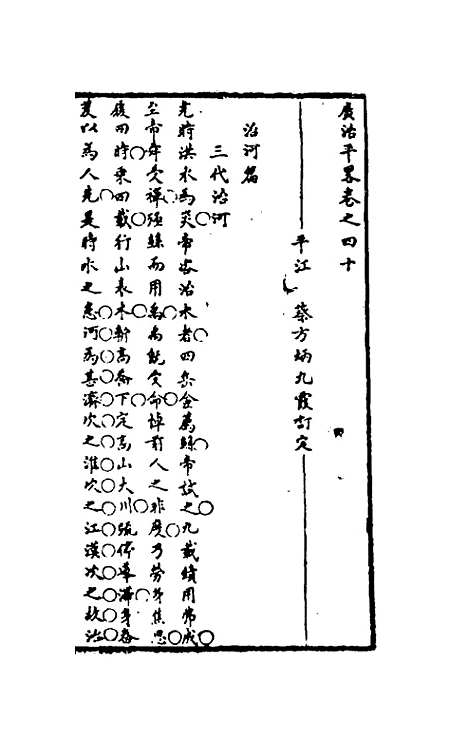 廣治平畧卷之四十
平江 蔡方炳九霞訂定
治河篇
三代治河
堯時洪水爲災帝咨治水者四岳僉薦鯀帝試之九載績用弗成
至帝舜受禪殛鯀而用禹禹旣受命悼前人之非度乃勞身焦思
復四時乘四載行山表木斬高喬下定高山大川疏停導滯身番
芟以爲人先是時水之患河爲甚濟次之淮次之江漢次之故治